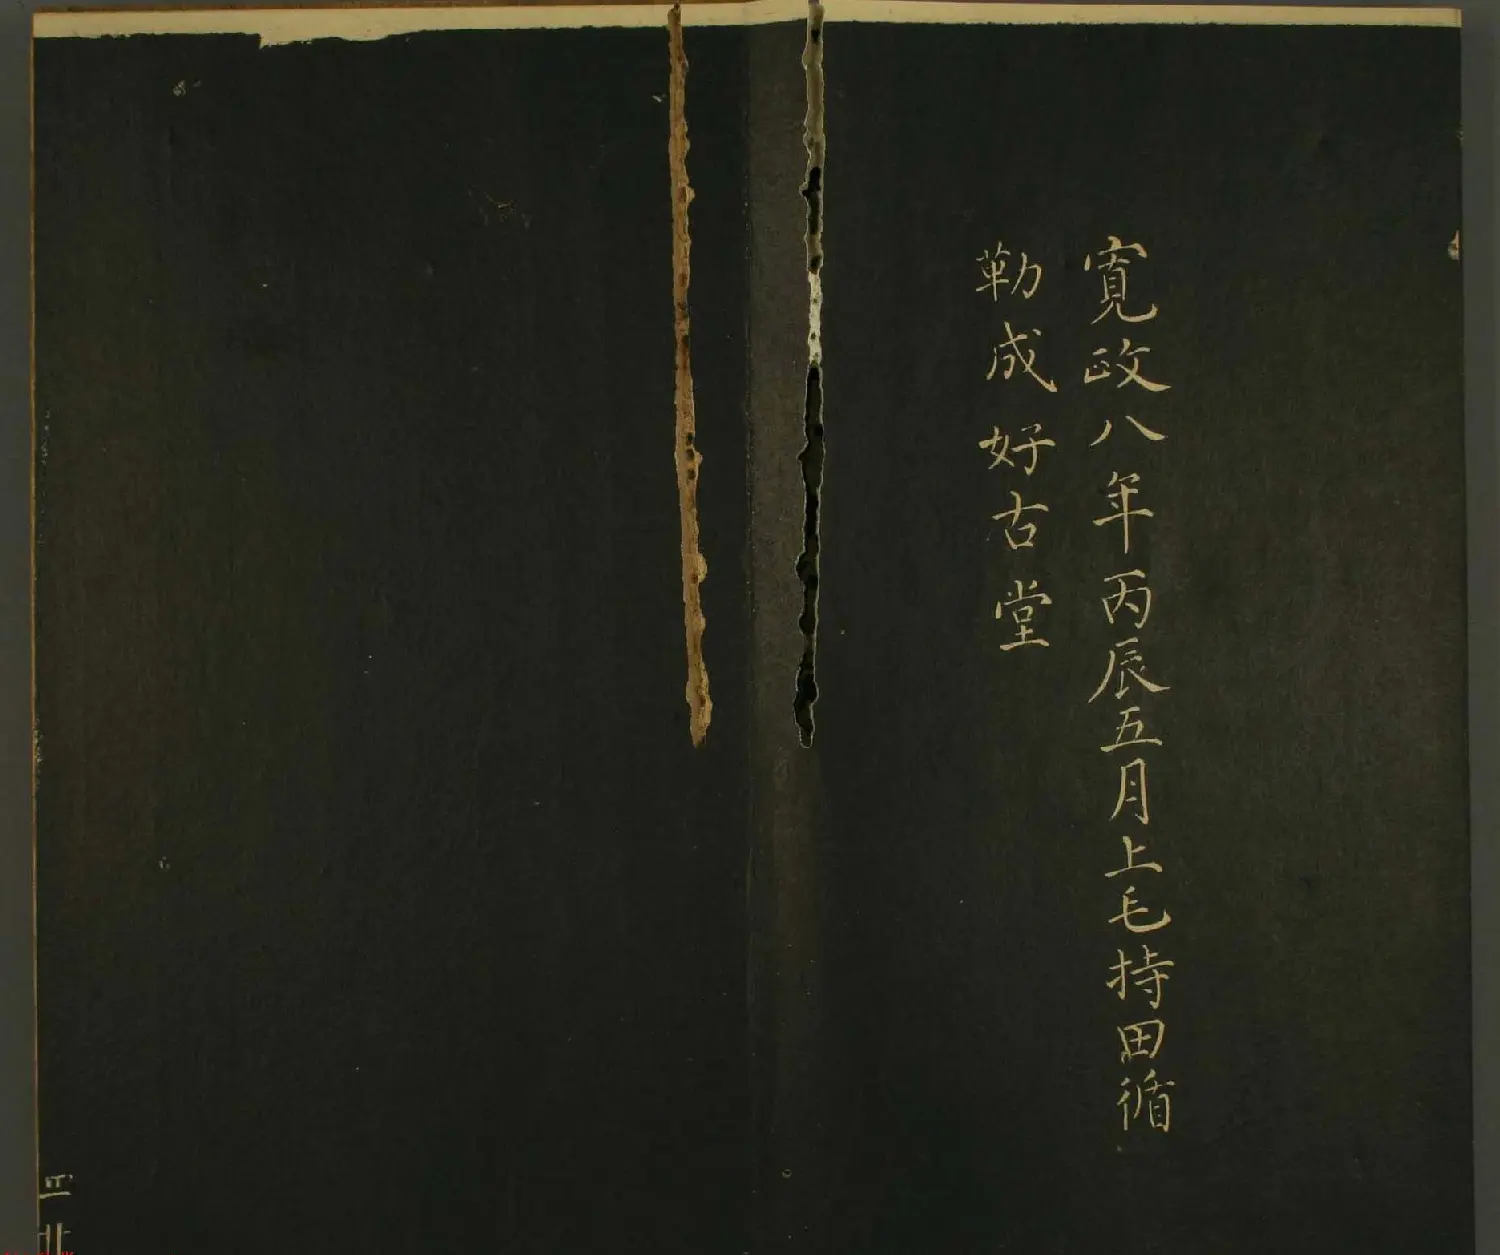 寛政八年丙辰五月上毛持田循
勒成好古堂